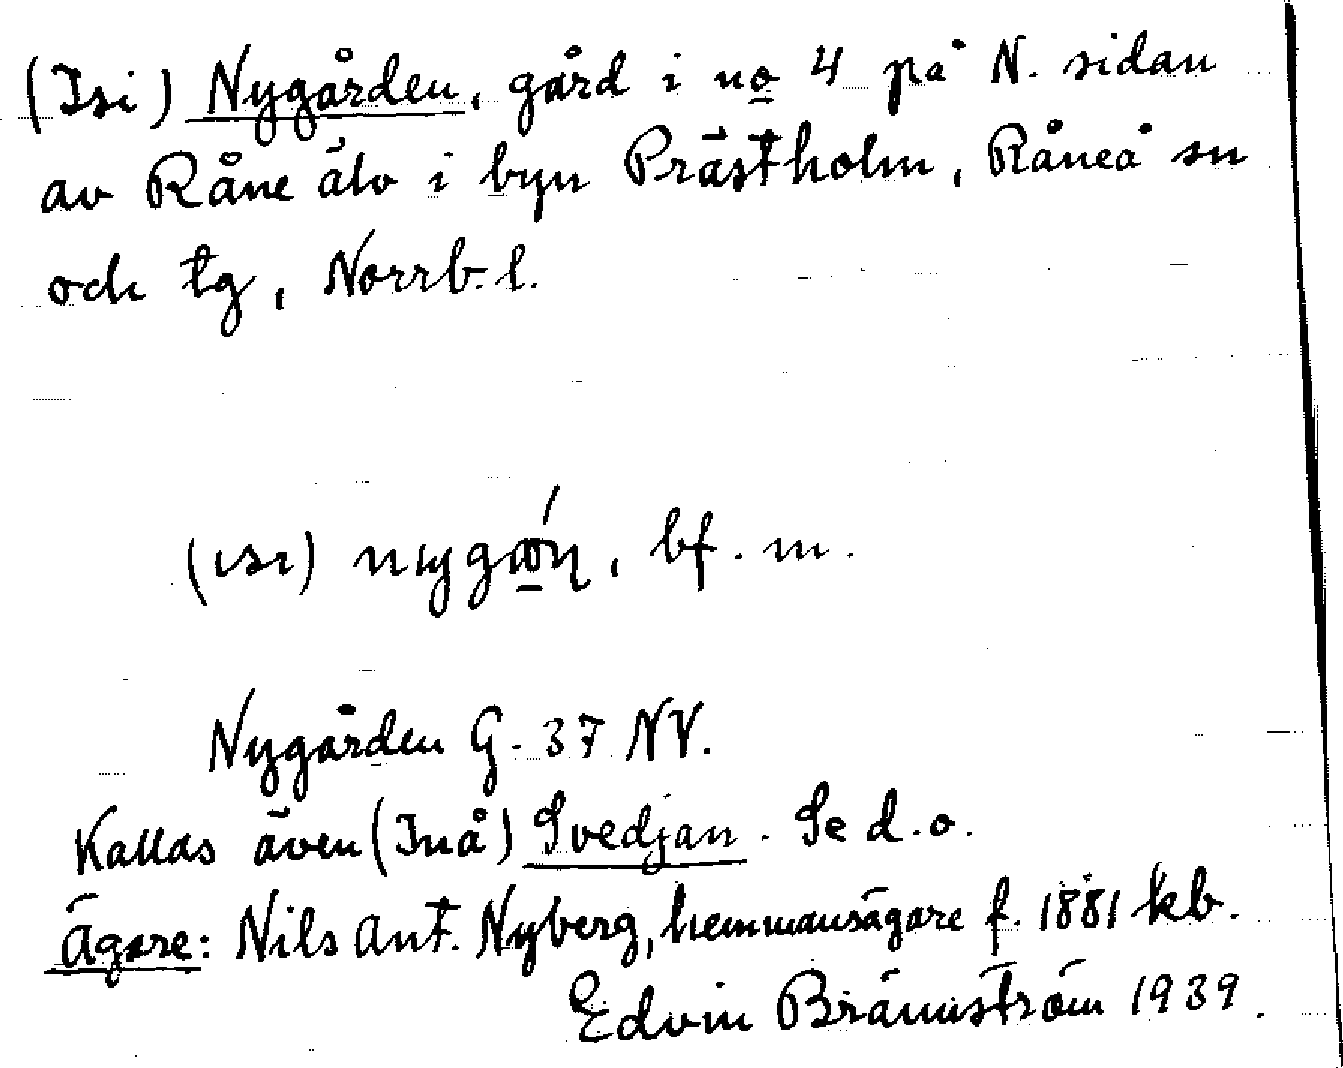 (Isi) Nygården, gård i no 4 på N. sidan
av Råne älv i byn Prästholm, Råneå sn
och tg, Norrb. l.
(ısı) , bf. m.
Nygården G. 37 NV.
Kallas även (Inå) Svedjan. Se d.o.
Ägare: Nils Ant. Nyberg, hemmansägare f. 1881 kb.
Edvin Brännström 1939.